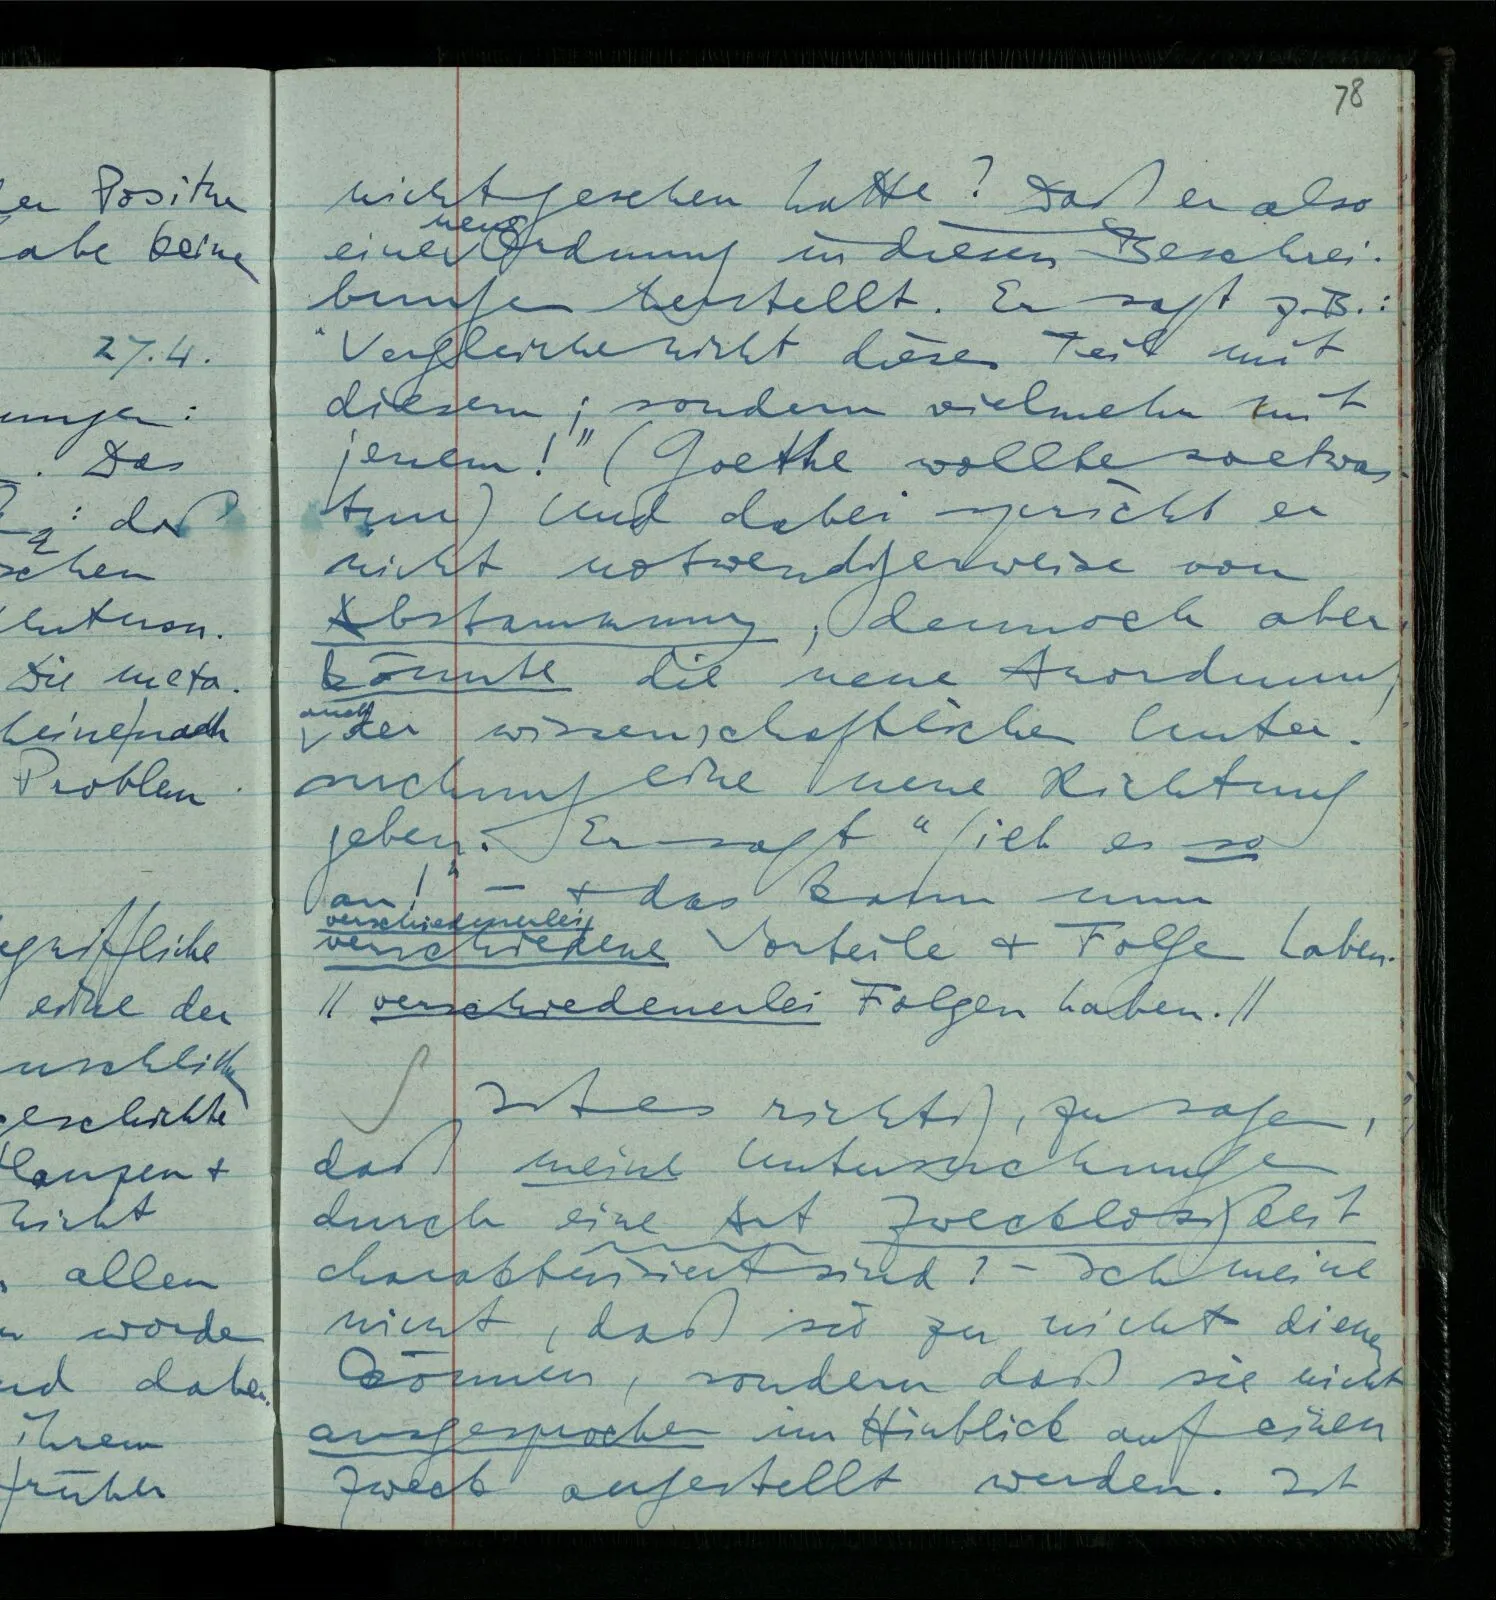 er Positur
abe keine
27.4.
ungen:
. Das
: daß
schen
Untersu.
Die meta.
keine/nach
Problem
egriffliche
eine der
nschlich
geschichte
flanzen +
nicht
allen
worde
nd dabei
ihrem
früher
78
nicht gesehen hatte? Daß er also
neue
eine Ordnung in diesen Beschrei-
bungen herstellt. Er sagt z.B.:
"Vergleiche nicht diesen Teil mit
diesem; sondern vielmehr mit
jenem!" (Goethe wollte soetwas
tun) Und dabei spricht er
nicht notwendigerweise von
Abstammung, dennoch aber
könnte die neue Anordnung
auch
der wissenschaftlichen Unter-
suchung eine neue Richtung
geben. Er sagt "sieh es so
an!" – + das kann nun
verschiedenerlei
verschiedene Vorteile + Folgen haben.
// verschiedenerlei Folgen haben. //
∫ Ist es richtig, zu sagen,
daß meine Untersuchungen
durch eine Art Zwecklosigkeit
charakterisiert sind? – Ich meine
nicht, daß sie zu nichts dienen
können, sondern daß sie nicht
ausgesprochen im Hinblick auf einen
Zweck angestellt werden. Ist